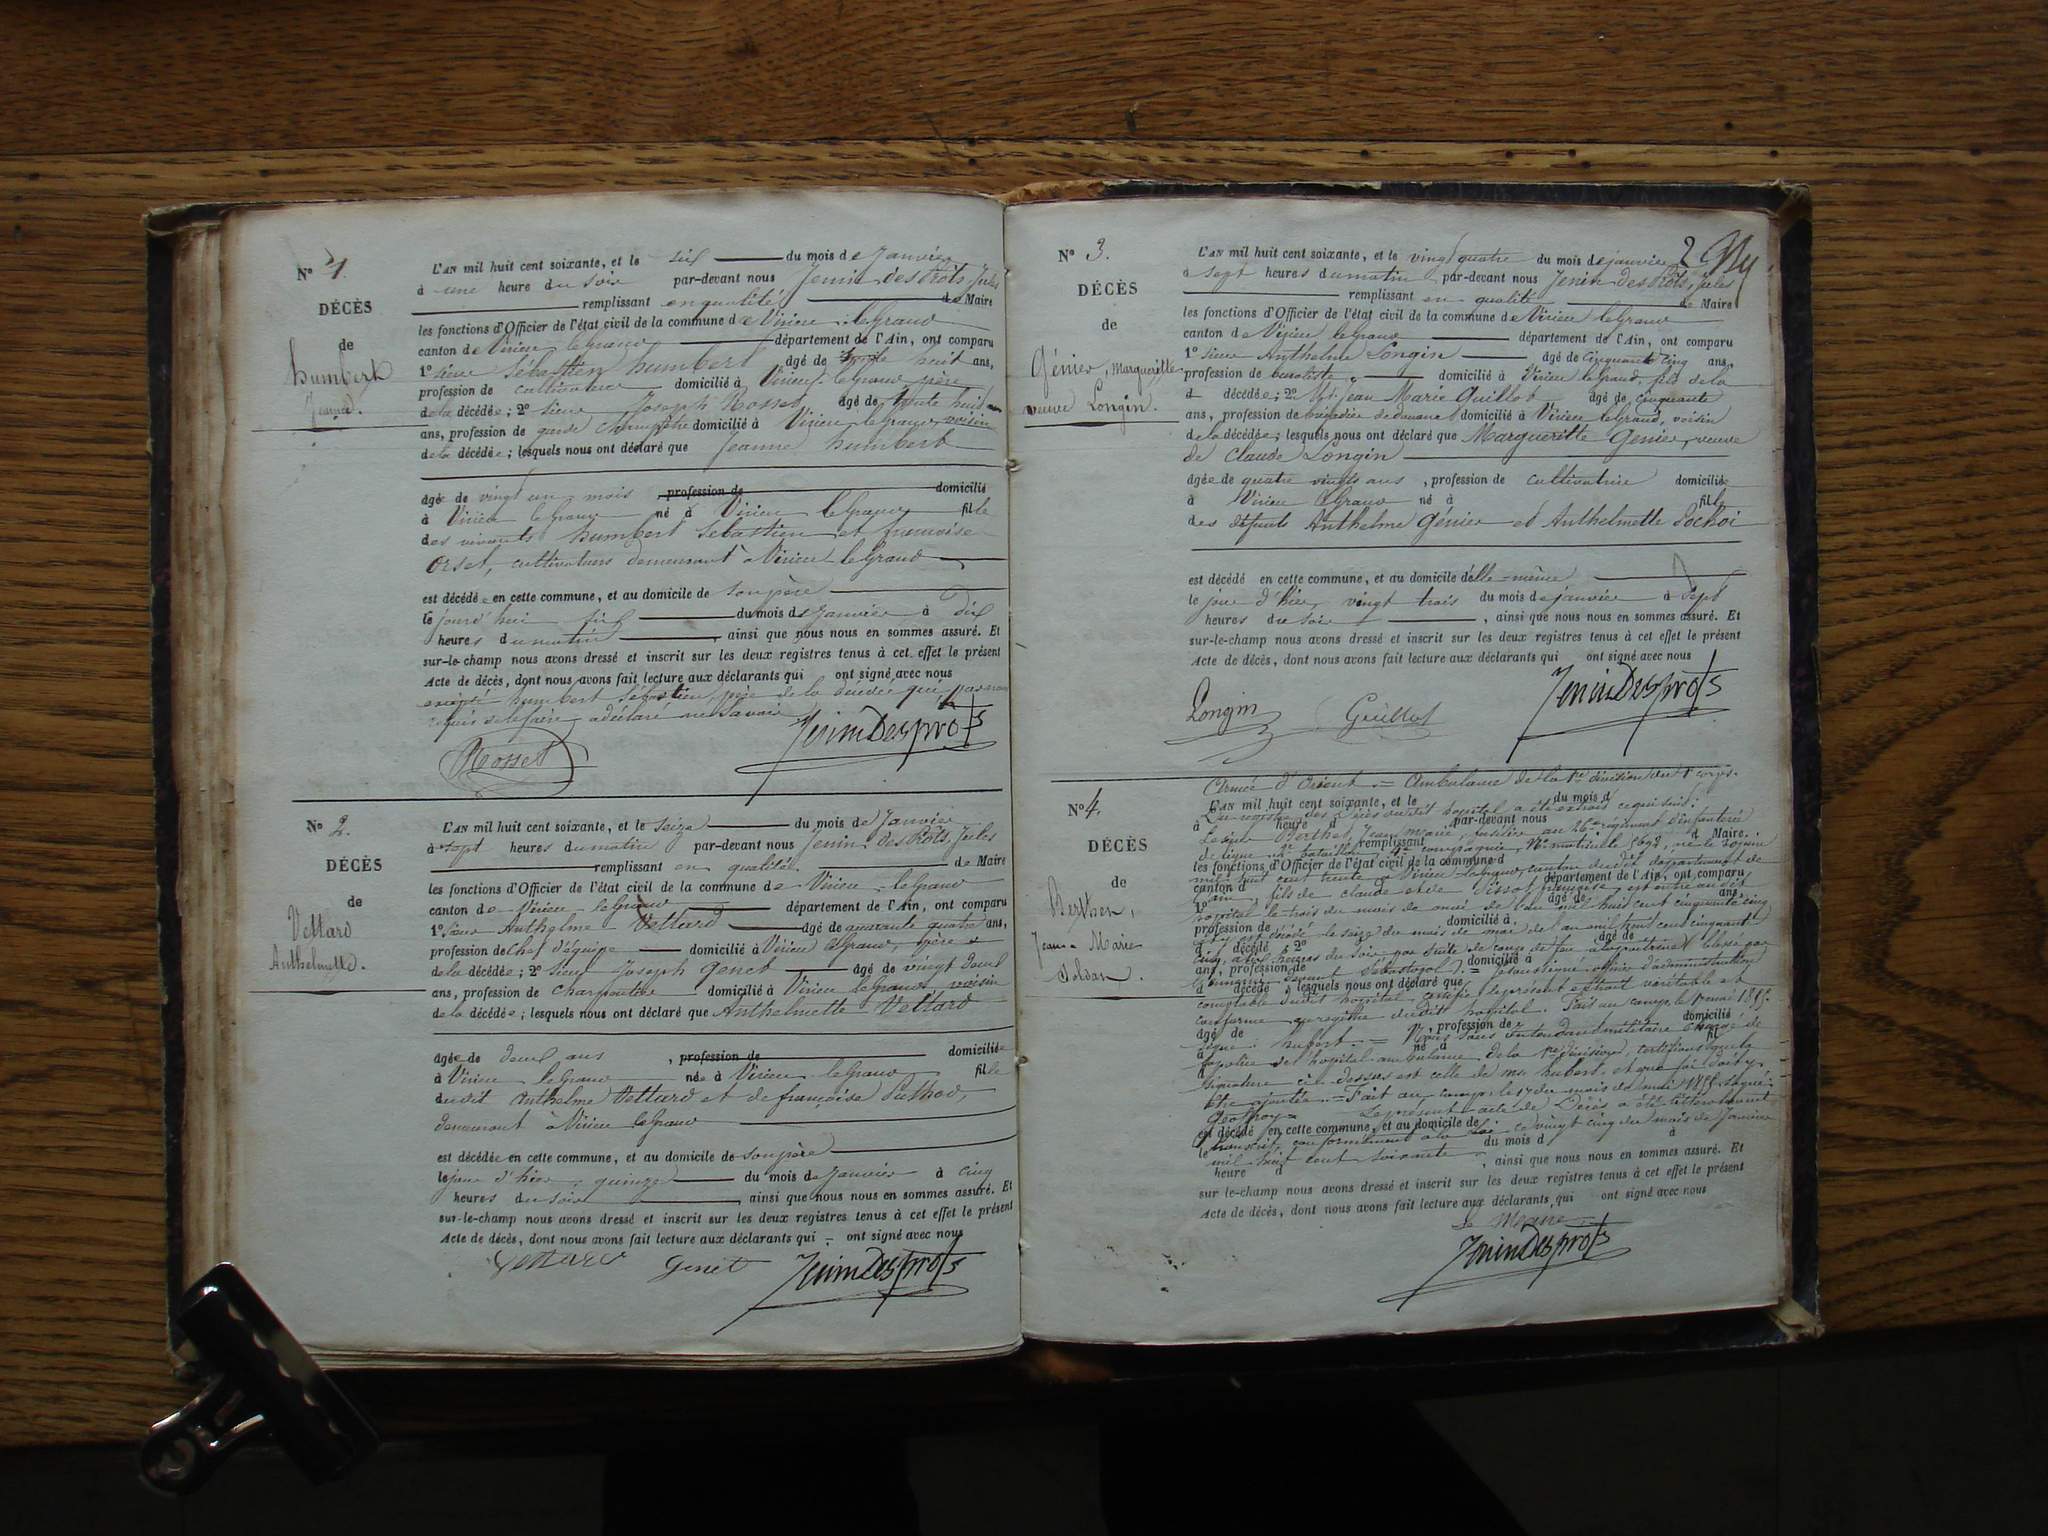 N° 1.
DÉCÈS
de
humbert
Jeanne.
L'AN mil huit cent soixante, et le six du mois de Janvier
à une heure du soir par-devant nous Jenin des Prots, Jules
remplissant en qualité de Maire
les fonctions d'Officier de l'état civil de la commune de Virieu le grand
canton de Virieu le grand département de l'Ain, ont comparu
1° sieur Sébastien humbert âgé de huit ans,
profession de cultivateur domicilié à Virieu le grand, père
de la décédée; 2° sieur Joseph Rosset âgé de trente huit
ans, profession de garde champêtre domicilié à Virieu le grand, voisin
de la décédée; lesquels nous ont déclaré que Jeanne humbert
âgée de vingt un mois profession de domicilié
à Virieu le grand né à Virieu le grand fille
des vivants humbert Sébastien et françoise
Orset, cultivateurs demeurant à Virieu le grand
est décédée en cette commune, et au domicile de son père
le jourd'hui six du mois de Janvier à dix
heures du matin, ainsi que nous nous en sommes assuré. Et
sur-le-champ nous avons dressé et inscrit sur les deux registres tenus à cet effet le présent
Acte de décès, dont nous avons fait lecture aux déclarants qui ont signé avec nous
excepté humbert Sébastien, père de la décédée qui par nous
requis de le faire a déclaré ne savoir
Rosset JeninDesprots
N° 2.
DÉCÈS
de
Vettard
Anthelmette.
L'AN mil huit cent soixante, et le seize du mois de Janvier
à sept heures du matin par-devant nous Jenin des Prots, Jules
remplissant en qualité de Maire
les fonctions d'Officier de l'état civil de la commune de Virieu le grand
canton de Virieu le grand département de l'Ain, ont comparu
1° sieur Anthelme Vettard âgé de quarante quatre ans,
profession de chef d'équipe domicilié à Virieu le grand, père
de la décédée; 2° sieur Joseph Genet âgé de vingt deux
ans, profession de charpentier domicilié à Virieu le grand, voisin
de la décédée; lesquels nous ont déclaré que Anthelmette Vettard
âgée de deux ans, profession de domiciliée
à Virieu le grand née à Virieu le grand fille
dudit Anthelme Vettard et de françoise
demeurant à Virieu le grand
est décédée en cette commune, et au domicile de son père
le jour d'hier, quinze du mois de Janvier à cinq
heures du soir, ainsi que nous nous en sommes assuré. Et
sur-le-champ nous avons dressé et inscrit sur les deux registres tenus à cet effet le présent
Acte de décès, dont nous avons fait lecture aux déclarants qui ont signé avec nous
Vettard Genet JeninDesprots
2
N° 3.
DÉCÈS
de
Génier, Margueritte
veuve Longin.
L'AN mil huit cent soixante, et le vingt quatre du mois de janvier
à sept heures du matin par-devant nous Jenin des Prots, jules
remplissant en qualité de Maire
les fonctions d'Officier de l'état civil de la commune de Virieu le grand
canton de Virieu le grand département de l'Ain, ont comparu
1° sieur Anthelme Longin âgé de cinquante cinq ans,
profession de domicilié à Virieu le grand, fils de la
d décédée; 2° jean Marie Guillot âgé de cinquante
ans, profession de brigadier de douane domicilié à Virieu le grand, voisin
de la décédée; lesquels nous ont déclaré que Marguerite Génier, veuve
de Claude Longin
âgée de quatre vingts ans, profession de cultivatrice domiciliée
à Virieu le grand né à fille
des défunts Anthelme Génier et Anthelmette
est décédé en cette commune, et au domicile d'elle-même
le jour d'hier, vingt trois du mois de janvier à sept
heures du soir, ainsi que nous nous en sommes assuré. Et
sur-le-champ nous avons dressé et inscrit sur les deux registres tenus à cet effet le présent
Acte de décès, dont nous avons fait lecture aux déclarants qui ont signé avec nous
Longin Guillot JeninDesprots
N° 4.
DÉCÈS
de
Berthet,
Jean-Marie
Soldat.
Armée d'Orient. = Ambulance de la 1re division du 1er corps.
L'AN mil huit cent soixante, et le du mois d
Du registre des Décès dudit hopital a été extrait ce qui suit:
à heure d par-devant nous
Le sieur Berthet Jean marie, fusilier au 26e régiment d'infanterie
remplissant d Maire.
de ligne 2e bataillon 4e compagnie, N° matricule 5692, né le 20 juin
les fonctions d'Officier de l'état civil de la commune d
mil huit cent trente à Virieu le grand, canton dudit département de
canton d département de l'Ain, ont comparu
l'ain, fils de claude et de françoise, est entré audit
1° âgé de ans,
hopital le trois du mois de mai de l'an mil huit cent cinquante cinq
profession de domicilié à
et y est décédé le seize du mois de mai de l'an mil huit cent cinquante
d décédé; 2° âgé de
cinq, à six heures du soir par suite de coup de feu à la poitrine (blessé par
ans, profession de domicilié à
l'ennemi devant Sébastopol). = Je soussigné, officier d'administration
décédé; lesquels nous ont déclaré que
comptable dudit hopital certifie le présent extrait véritable et
conforme au registre dudit hopital. Fait au camp, le 17 mai 1855.
âgé de, profession de domicilié
signé: hubert. = Nous sous intendant militaire chargé de
à né à fil
la police de l'hopital ambulance de la 1re division, certifions que la
signature ci-dessus est celle de mr hubert, et que foi doit y
être ajoutée. = Fait au camp, le 17 du mois de mai 1855. signé:
Geoffroy = Le présent acte de Décès a été littéralement
est décédé en cette commune, et au domicile de
transcrit, conformément à la loi ce vingt cinq du mois de Janvier
le du mois d à
mil huit cent soixante
heure d, ainsi que nous nous en sommes assuré. Et
sur le-champ nous avons dressé et inscrit sur les deux registres tenus à cet effet le présent
Acte de décès, dont nous avons fait lecture aux déclarants qui ont signé avec nous
Le Maire
JeninDesprots